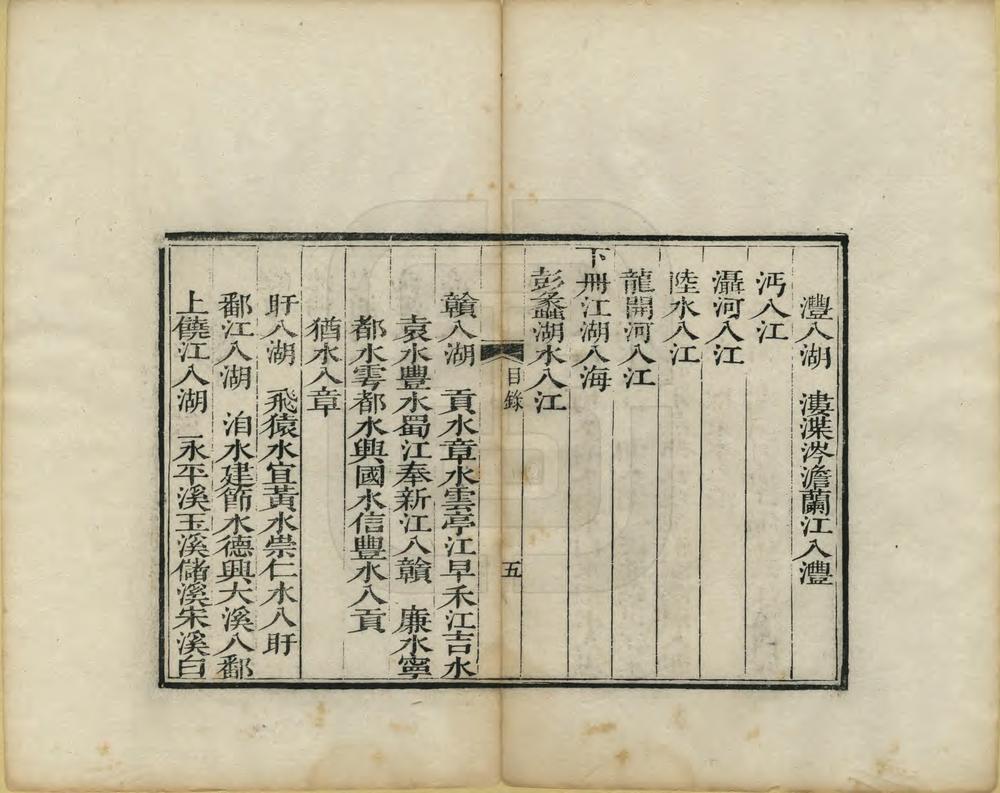 灃入湖　漊渫涔澹蘭江入灃
沔入江
灄河入江
陸水入江
龍開河入江
下冊江湖入海
彭蠡湖水入江
目錄　五
贛入湖　貢水章水雲亭江旱禾江吉水
袁水豐水蜀江奉新江入贛　廉水寧
都水雩都水興國水信豐水入貢
猶水入章
盱入湖　飛猿水宜黃水崇仁水入盱
鄱江入湖　洎水建節水德興大溪入鄱
上饒江入湖　永平溪玉溪儲溪宋溪白